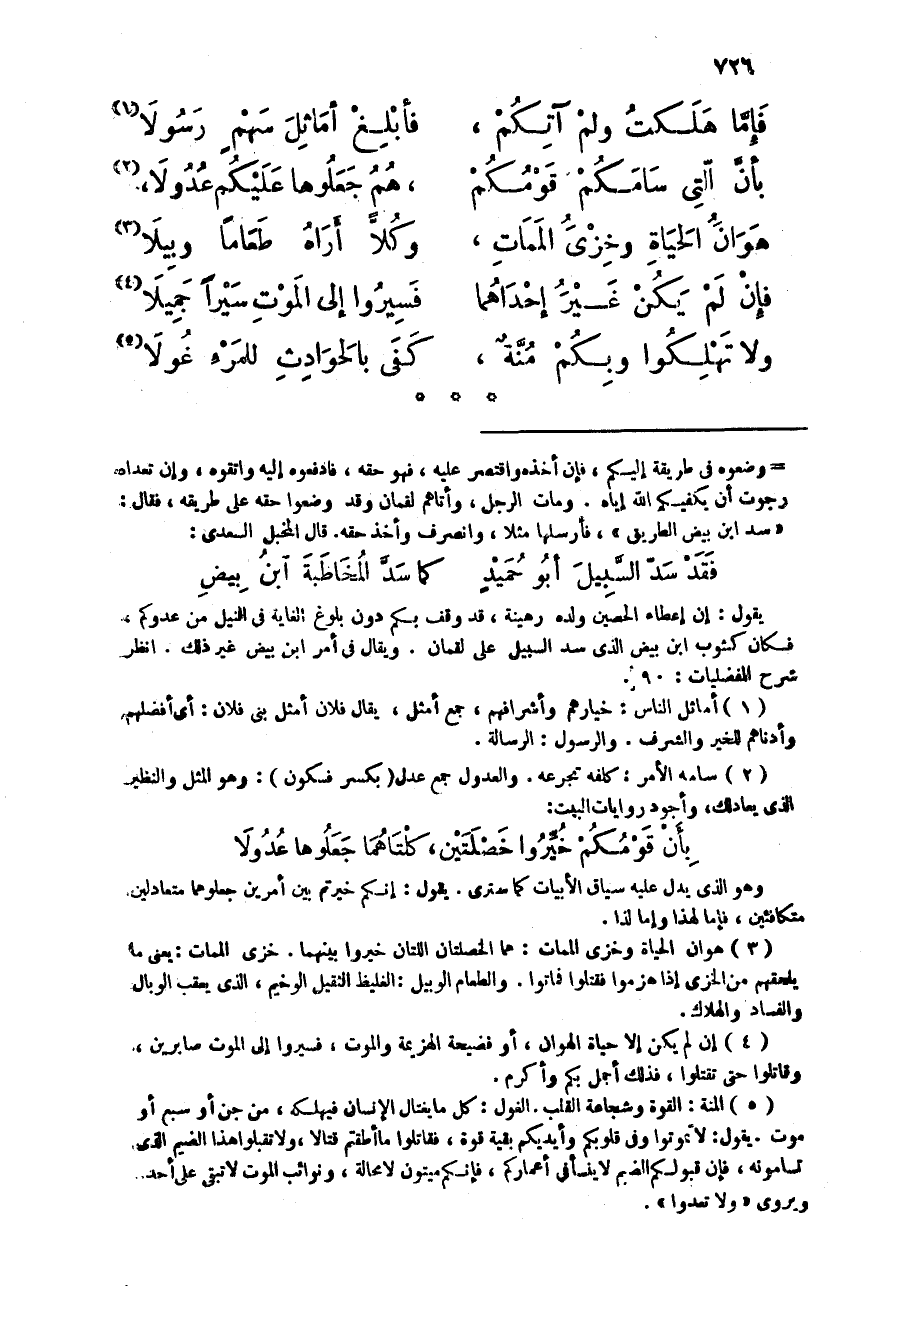 ٧٢٦
فَإِمَّا هَلَـكتُ ولمْ آتِـكُمْ ، فأبْلِـغْ أمَاثِلَ سَهْمٍ رَسُولَا(١)
بأنَّ الَّتِي سَامَـكُمْ قَوْمُـكُمْ ، هُمُ جَعَلُوها عَلَيْكُم عُدُولَا،(٢)
هَوَانُ الحَيَاةِ وخِزْىُ المَمَاتِ ، وكُلاًّ أَرَاهُ طَعَاماً وبِيلَا(٣)
فإنْ لَمْ يَكُنْ غَـيْرُ إحْدَاهُما فَسِيرُوا إلى المَوْتِ سَيْراً جَمِيلَا(٤)
ولا تَهْلِـكُوا وبِـكُمْ مُنَّةٌ ، كَفَى بالحَوَادِثِ للمَرْءِ غُولَا(٥)
* * *
= وضعوه فى طريقة إليـكم ، فإن أخذه واقتصر عليه ، فهو حقه ، فادفعوه إليه واتقوه ، وإن تعداه
رجوت أن يكفيـكم الله إياه . ومات الرجل ، وأتاهم لقمان وقد وضعوا حقه على طريقه ، فقال :
« سد ابن بيض الطريق » ، فأرسلها مثلا ، وانصرف وأخذ حقه. قال المخبل السعدى :
فَقَدْ سَدّ السَّبِيلَ أبُو حُمَيْدٍ كما سَدَّ المُخَاطَبَةَ ابنُ بِيضِ
يقول : إن إعطاء الحصين ولده رهينة ، قد وقف بـكم دون بلوغ الغاية فى النيل من عدوكم ،
فـكان كثوب ابن بيض الذى سد السبيل على لقمان . ويقال فى أمر ابن بيض غير ذلك . انظر
شرح المفضليات : ٩٠ .
( ١ ) أماثل الناس : خيارهم وأشرافهم ، جمع أمثل ، يقال فلان أمثل بنى فلان : أى أفضلهم
وأدناهم للخير والشرف . والرسول : الرسالة .
( ٢ ) سامه الأمر : كلفه تجرعه . والعدول جمع عدل ( بكسر فسكون ) : وهو المثل والنظير
الذى يعادلك، وأجود روايات البيت:
بِأَنْ قَوْمُـكُمْ خُيِّرُوا خَصْلَتَيْنِ، كِلْتَاهُمَا جَعَلُوها عُدُولَا
وهو الذى يدل عليه سياق الأبيات كما سترى . يقول : إنـكم خيرتم بين أمرين جعلوهما متعادلين
متكافئين ، فإما لهذا وإما لذا .
( ٣ ) هوان الحياة وخزى الممات : هما الخصلتان اللتان خيروا بينهما . خزى الممات : يعنى ما
يلحقهم من الخزى إذا هزموا فقتلوا فماتوا . والطعام الوبيل : الغليظ الثقيل الوخيم ، الذى يعقب الوبال
والفساد والهلاك .
( ٤ ) إن لم يكن إلا حياة الهوان ، أو فضيحة الهزيمة والموت ، فسيروا إلى الموت صابرين ،
وقاتلوا حتى تقتلوا ، فذلك أجمل بكم وأكرم .
( ٥ ) المنة : القوة وشجاعة القلب . الغول : كل ما يغتال الإنسان فيهلكه ، من جن أو سبع أو
موت . يقول : لا تموتوا وفى قلوبكم وأيديكم بقية قوة ، فقاتلوا ما أطقتم قتالا ، ولا تقبلوا هذا الضيم الذى
تسامونه ، فإن قبولـكم الضيم لا ينسأ فى أعماركم ، فإنـكم ميتون لا محالة ، ونوائب الموت لا تبقى على أحد .
ويروى « ولا تعدوا » .